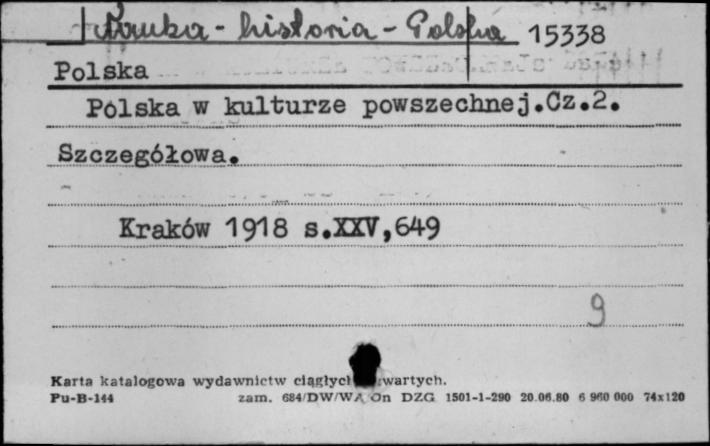 Nauka - historia - Polska 15338
Polska
Polska w kulturze powszechnej.Cz.2.
Szczegółowa.
Kraków 1918 s.XXV,649
9
Karta katalogowa wydawnictw ciągłych
Pu-B-144 zam. 684/DW/WA On DZG 1501-1-290 20.06.80 6 960 000 74x120